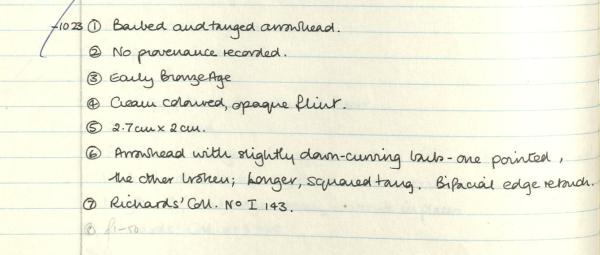 -1023 ① Barbed and tanged arrowhead.
② No provenance recorded.
③ Early Bronze Age
④ Cream coloured, opaque flint.
⑤ 2.7cm x 2cm.
⑥ Arrowhead with slightly down-curving barbs - one pointed,
the other broken; longer, squared tang. Bifacial edge retouch.
⑦ Richards' Coll. No I 143.
⑧ £1-50